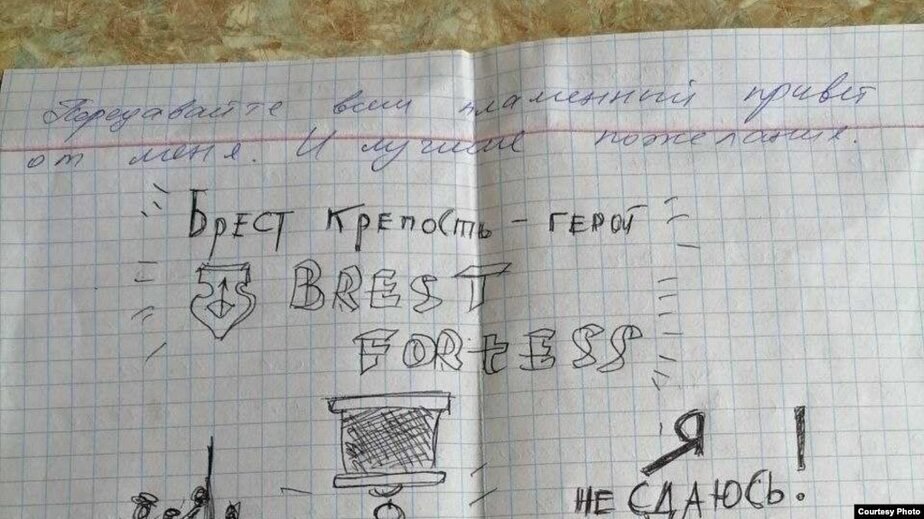 Передавайте всем пламенный привет
от меня. И лучшие пожелания.
Брест крепость - герой
BREST
FORtESS
Я
НЕ СДАЮСЬ!
Courtesy Photo